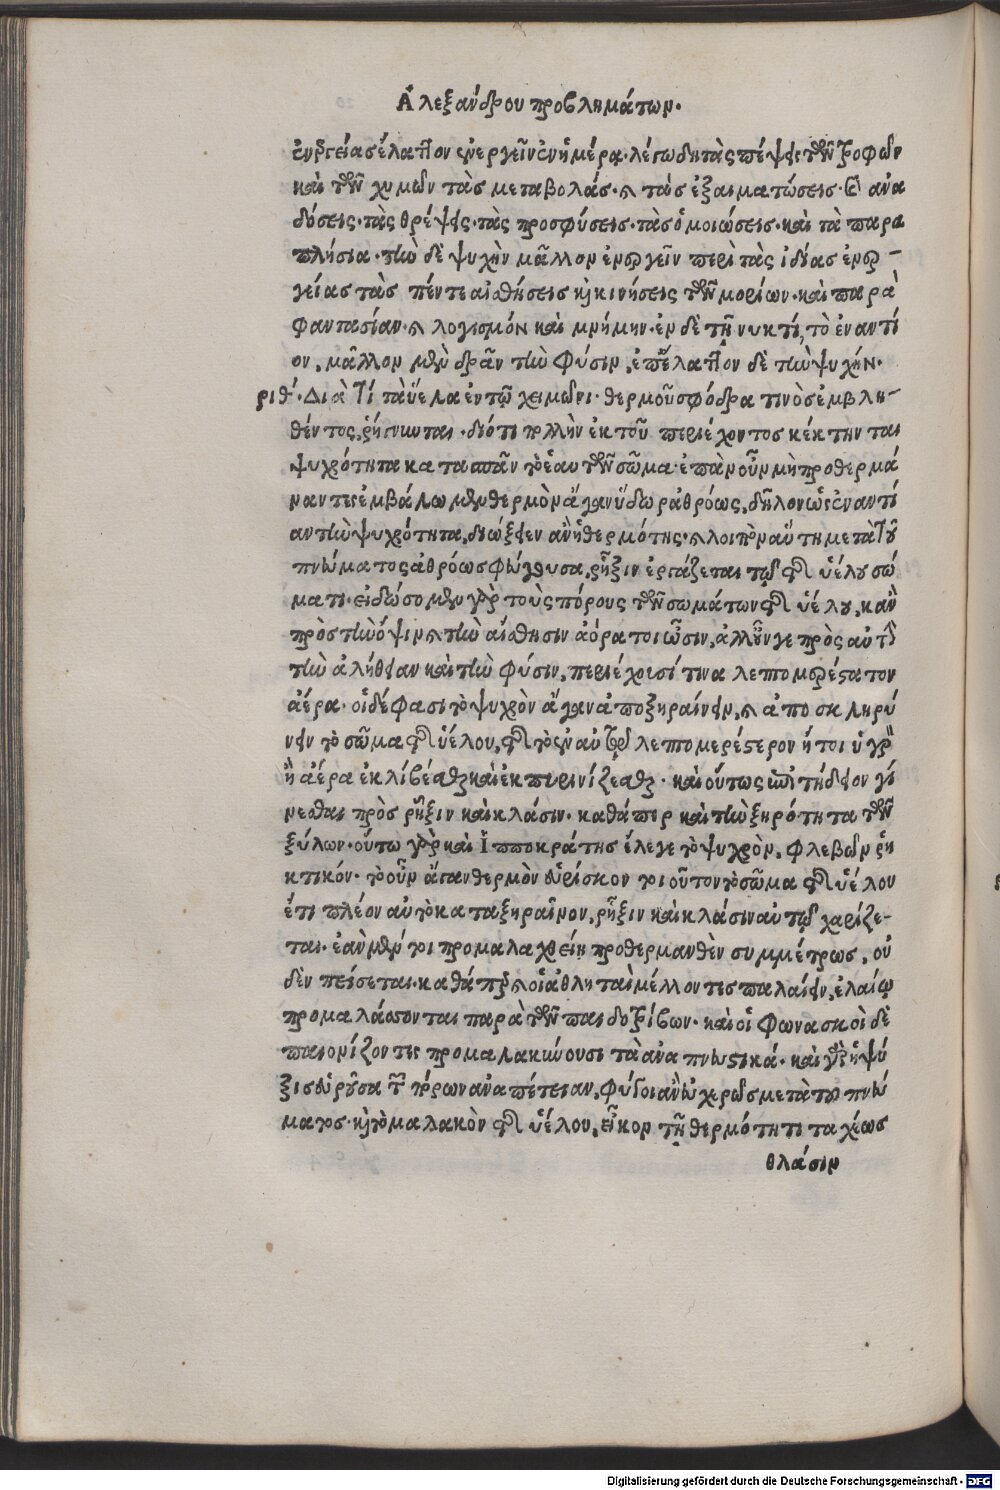 Ἀλεξάνδρου προβλημάτων.
ἐνεργείας ἔλαττον ἐνεργεῖν ἐν ἡμέρᾳ· λέγω δὴ τὰς πέψεις τῶν τροφῶν
καὶ τῶν χυμῶν τὰς μεταβολάς· καὶ τὰς ἐξαιματώσεις· καὶ ἀνα
δόσεις· τὰς θρέψεις· τὰς προσφύσεις· τὰς ὁμοιώσεις· καὶ τὰ παρα
πλήσια· τὴν δὲ ψυχὴν μᾶλλον ἐνεργεῖν περὶ τὰς ἰδίας ἐνερ-
γείας τὰς πέντε αἰσθήσεις καὶ κινήσεις τῶν μορίων· καὶ παρὰ
φαντασίαν· καὶ λογισμὸν καὶ μνήμην· ἐν δὲ τῇ νυκτί, τὸ ἐναντί
ον, μᾶλλον μὲν δρᾶν τὴν φύσιν, ἐπ' ἔλαττον δὲ τὴν ψυχήν.
ριθ´. Διὰ τί τὰ ὕελα ἐν τῷ χειμῶνι· θερμοῦ σφόδρα τινὸς ἐμβλη-
θέντος, ῥήγνυνται· διότι πολλὴν ἐκ τοῦ περιέχοντος κέκτηνται
ψυχρότητα κατὰ πᾶν τὸ ἑαυτῶν σῶμα· ἐπὰν οὖν μὴ προθερμά
ναντες ἐμβάλωμεν θερμὸν ἄγαν ὕδωρ ἀθρόως, δῆλον ὡς ἐναντί
αν τὴν ψυχρότητα, διώξειεν ἂν ἡ θερμότης· καὶ λοιπὸν αὕτη μετὰ τοῦ
πνεύματος ἀθρόως φεύγουσα, ῥῆξιν ἐργάζεται τῷ τοῦ ὑέλου σώ
ματι· εἰδώσομεν γὰρ τοὺς πόρους τῶν σωμάτων τοῦ ὑέλου, κἂν
πρὸς τὴν ὄψιν καὶ τὴν αἴσθησιν ἀόρατοι ὦσιν, ἀλλ' οὖν γε πρὸς αὐτὴν
τὴν ἀλήθειαν καὶ τὴν φύσιν, περιέχουσί τινα λεπτομερέστατον
ἀέρα· οἱ δέ φασι τὸ ψυχρὸν ἄγαν ἀποξηραίνειν, καὶ ἀποσκληρύ
νειν τὸ σῶμα τοῦ ὑέλου, τοῦ τὸ ἐν αὐτῷ λεπτομερέστερον ἤτοι ὑγρὸν
ἢ ἀέρα ἐκλίβεσθαι καὶ ἐκπυρινίζεσθαι· καὶ οὕτως ἐπιτήδειον γί
νεσθαι πρὸς ῥῆξιν καὶ κλάσιν· καθάπερ καὶ τὴν ξηρότητα τῶν
ξύλων· οὕτω γὰρ καὶ Ἱπποκράτης ἔλεγε τὸ ψυχρὸν, φλεβῶν ῥη
κτικόν· τὸ οὖν ἄγαν θερμὸν εὑρίσκον τοιοῦτον τὸ σῶμα τοῦ ὑέλου
ἔτι πλέον αὐτὸ καταξηραῖνον, ῥῆξιν καὶ κλάσιν αὐτῷ χαρίζε-
ται· ἐὰν μέν τοι προμαλαχθείη προθερμανθὲν συμμέτρως, οὐ
δὲν πείσεται· καθάπερ καὶ οἱ ἀθληταὶ μέλλοντες παλαίειν, ἐλαίῳ
προμαλάσσονται παρὰ τῶν παιδοτρίβων· καὶ οἱ φωνασκοὶ δὲ
παιονίζοντες προμαλακύνουσι τὰ ἀναπνευστικά· καὶ γὰρ ἡ ψύ
ξις εὑροῦσα τῶν πόρων ἀναπέτειαν, φύγοι ἂν εὐχερῶς μετὰ τοῦ πνεύ
ματος· καὶ τὸ μαλακὸν τοῦ ὑέλου, εἶκον τῇ θερμότητι ταχέως
θλάσιν
Digitalisierung gefördert durch die Deutsche Forschungsgemeinschaft - DFG